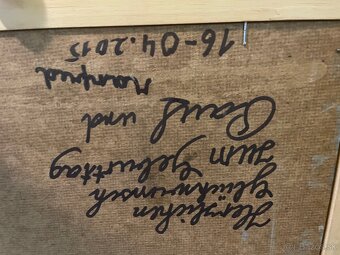 Herzlichen
Glückwunsch
zum Geburtstag
und
Manfred
16-04.2015